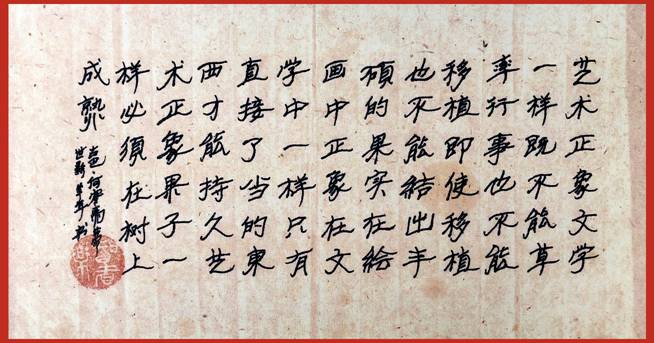 艺术正象文学
一样既不能草
率行事也不能
移植即使移植
也不能結出丰
碩的果实在繪
画中正象在文
学中一样只有
直接了当的東
西才能持久艺
术正象果子一
样必須在树上
成熟